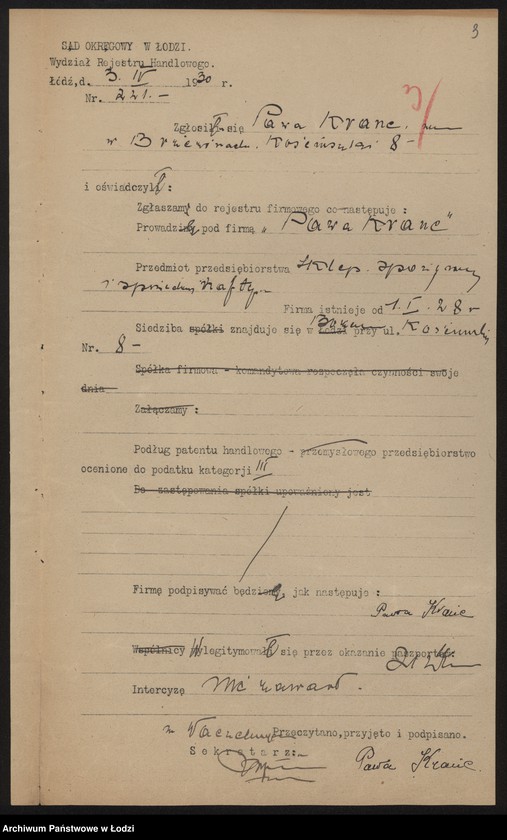 3
SĄD OKRĘGOWY W ŁODZI.
Wydział Rejestru Handlowego.
Łódź, d. 3. IV 1930 r.
Nr. 221.-
Zgłosił się Pawa Kranc.
w Brzezinach. Kościuszki 8-
i oświadczył :
Zgłaszamy do rejestru firmowego co następuje :
Prowadzi pod firmą „Pawa Kranc"
Przedmiot przedsiębiorstwa sklep. spożywczy
i sprzedaży nafty.-
Firma istnieje od 1.I.28 r
Siedziba spółki znajduje się w Łodzi przy ul. Kościuszki
Nr. 8-
Spółka firmowa - komandytowa rozpoczęła czynności swoje
dnia
Załączamy :
Podług patentu handlowego - przemysłowego przedsiębiorstwo
ocenione do podatku kategorji III
Do zastępowania spółki upoważniony jest
Firmę podpisywać będzie jak następuje :
Pawa Kranc
Wspólnicy wylegitymował się przez okazanie paszportów.
Intercyzę nie zawarł.
Przeczytano, przyjęto i podpisano.
Sekretarz:-
Pawa Kranc.
Archiwum Państwowe w Łodzi